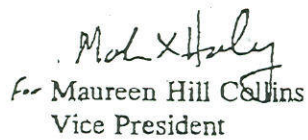 for Maureen Hill Collins
Vice President